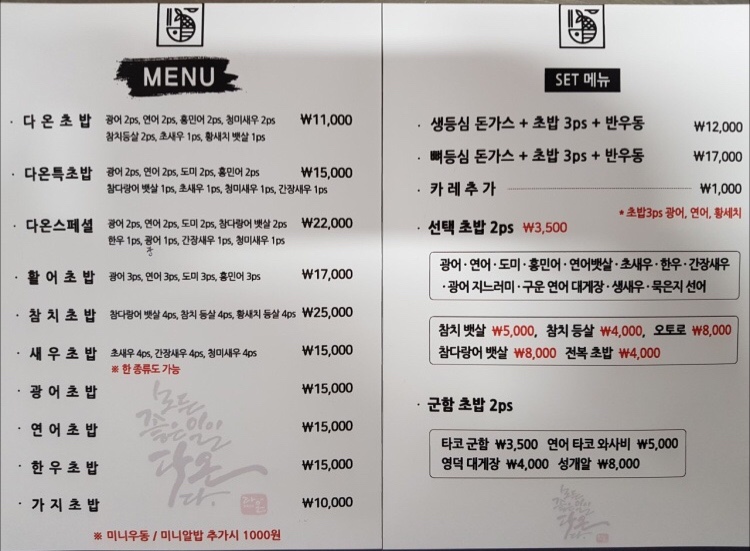 MENU
· 다온초밥 광어 2ps, 연어 2ps, 홍민어 2ps, 청미새우 2ps ₩11,000
참치등살 2ps, 초새우 1ps, 황새치 뱃살 1ps
· 다온특초밥 광어 2ps, 연어 2ps, 도미 2ps, 홍민어 2ps ₩15,000
참다랑어 뱃살 1ps, 초새우 1ps, 청미새우 1ps, 간장새우 1ps
· 다온스페셜 광어 2ps, 연어 2ps, 도미 2ps, 참다랑어 뱃살 2ps ₩22,000
한우 1ps, 광어 1ps, 간장새우 1ps, 청미새우 1ps
장
· 활어초밥 광어 3ps, 연어 3ps, 도미 3ps, 홍민어 3ps ₩17,000
· 참치초밥 참다랑어 뱃살 4ps, 참치 등살 4ps, 황새치 등살 4ps ₩25,000
· 새우초밥 초새우 4ps, 간장새우 4ps, 청미새우 4ps ₩15,000
※ 한 종류도 가능
· 광어초밥 ₩15,000
· 연어초밥 ₩15,000
· 한우초밥 ₩15,000
· 가지초밥 ₩10,000
모든
좋은일일
다온
다.
※ 미니우동 / 미니알밥 추가시 1000원
SET 메뉴
· 생등심 돈가스 + 초밥 3ps + 반우동 ₩12,000
· 뼈등심 돈가스 + 초밥 3ps + 반우동 ₩17,000
· 카레추가 ₩1,000
* 초밥3ps 광어, 연어, 황세치
· 선택 초밥 2ps ₩3,500
광어 · 연어 · 도미 · 홍민어 · 연어뱃살 · 초새우 · 한우 · 간장새우
· 광어 지느러미 · 구운 연어 대게장 · 생새우 · 묵은지 선어
참치 뱃살 ₩5,000, 참치 등살 ₩4,000, 오토로 ₩8,000
참다랑어 뱃살 ₩8,000 전복 초밥 ₩4,000
· 군함 초밥 2ps
타코 군함 ₩3,500 연어 타코 와사비 ₩5,000
영덕 대게장 ₩4,000 성개알 ₩8,000
모든
좋은일일
다온
다.